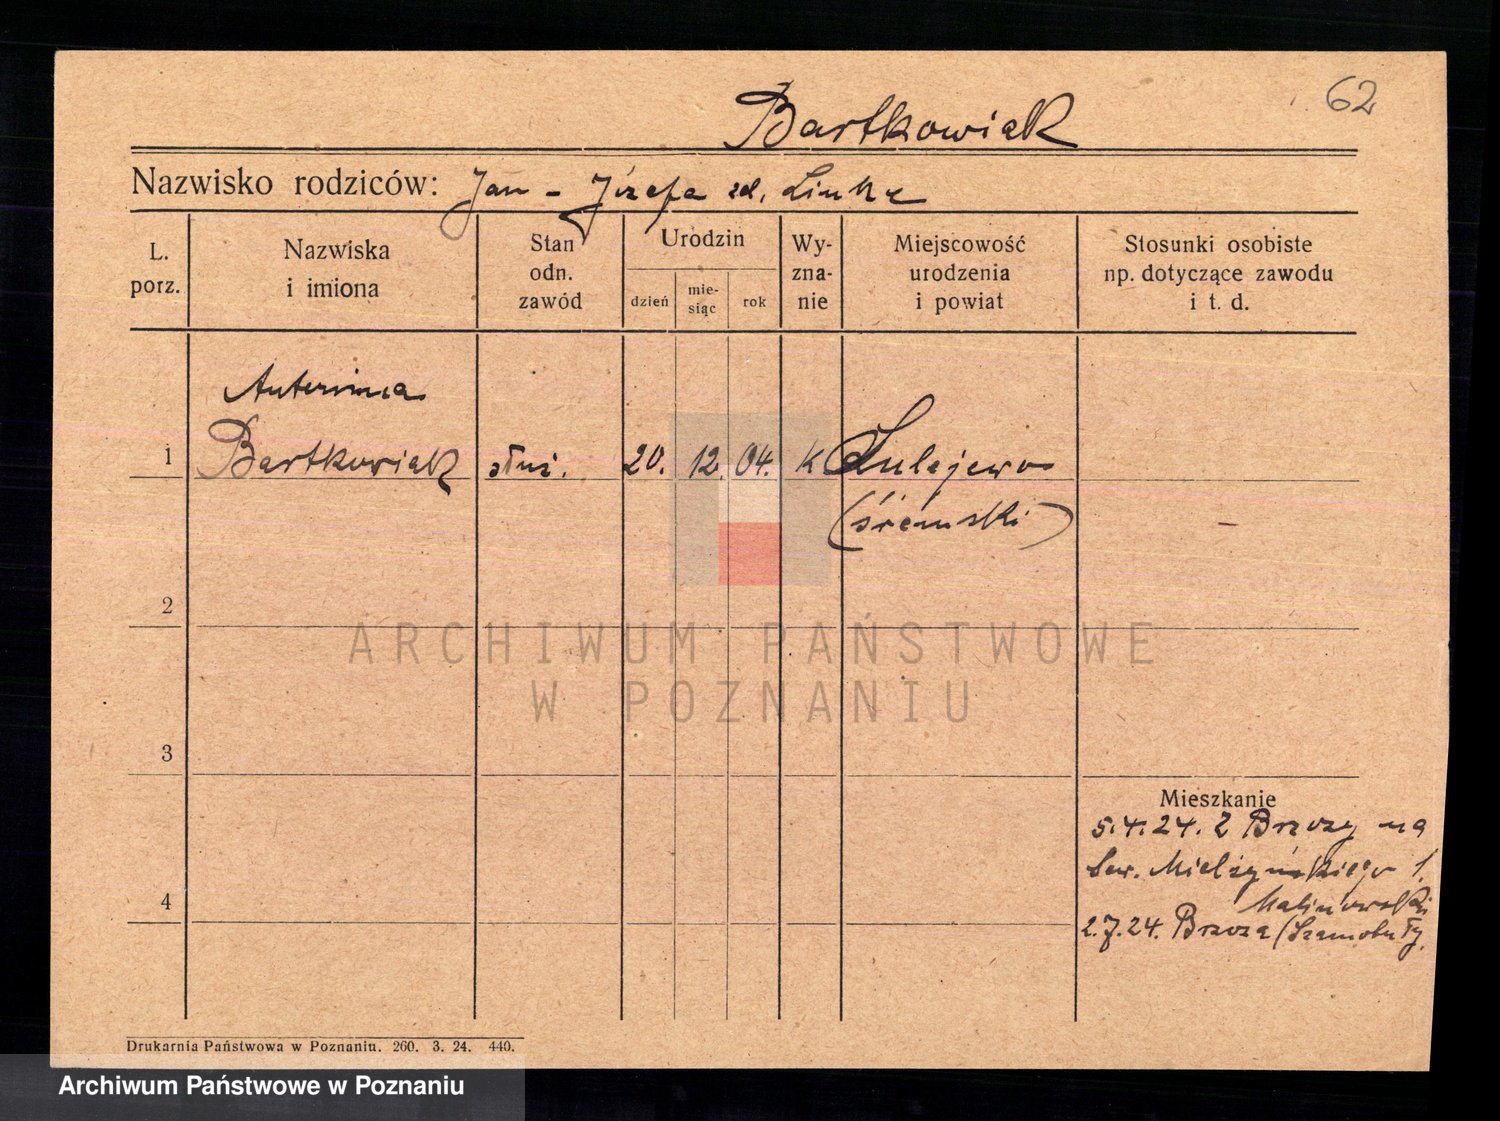 62
Bartkowiak
Nazwisko rodziców: Jan - Józefa zd. Linke
L. porz.
Nazwiska i imiona
Stan odn. zawód
Urodzin
dzień
mie-siąc
rok
Wy-zna-nie
Miejscowość urodzenia i powiat
Stosunki osobiste np. dotyczące zawodu i t. d.
Antonina
1 Bartkowiak służ. 20. 12. 04. k Sulejewo
(śremski)
-
2
ARCHIWUM PAŃSTWOWE
W POZNANIU
3
Mieszkanie
5.4.24. Z Brzozy na
Sew. Mielżyńskiego 1.
Malinowski
4
2.7.24. Brzoza (Szamotuły,
Drukarnia Państwowa w Poznaniu. 260. 3. 24. 440.
Archiwum Państwowe w Poznaniu